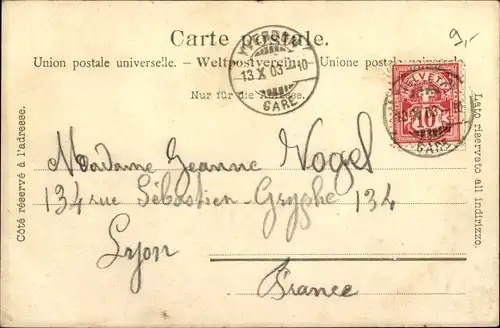 9,-
Carte postale.
Union postale universelle. – Weltpostverein. – Unione postale universale.
Nur für die Adresse.
YVERDON
13 X 03 – 10
GARE
HELVETIA
10
13 X 03
GARE
Côté réservé à l'adresse.
Lato riservato all indirizzo.
Madame Jeanne Vogel
134 rue Sébastien-Gryphe 134
Lyon
France